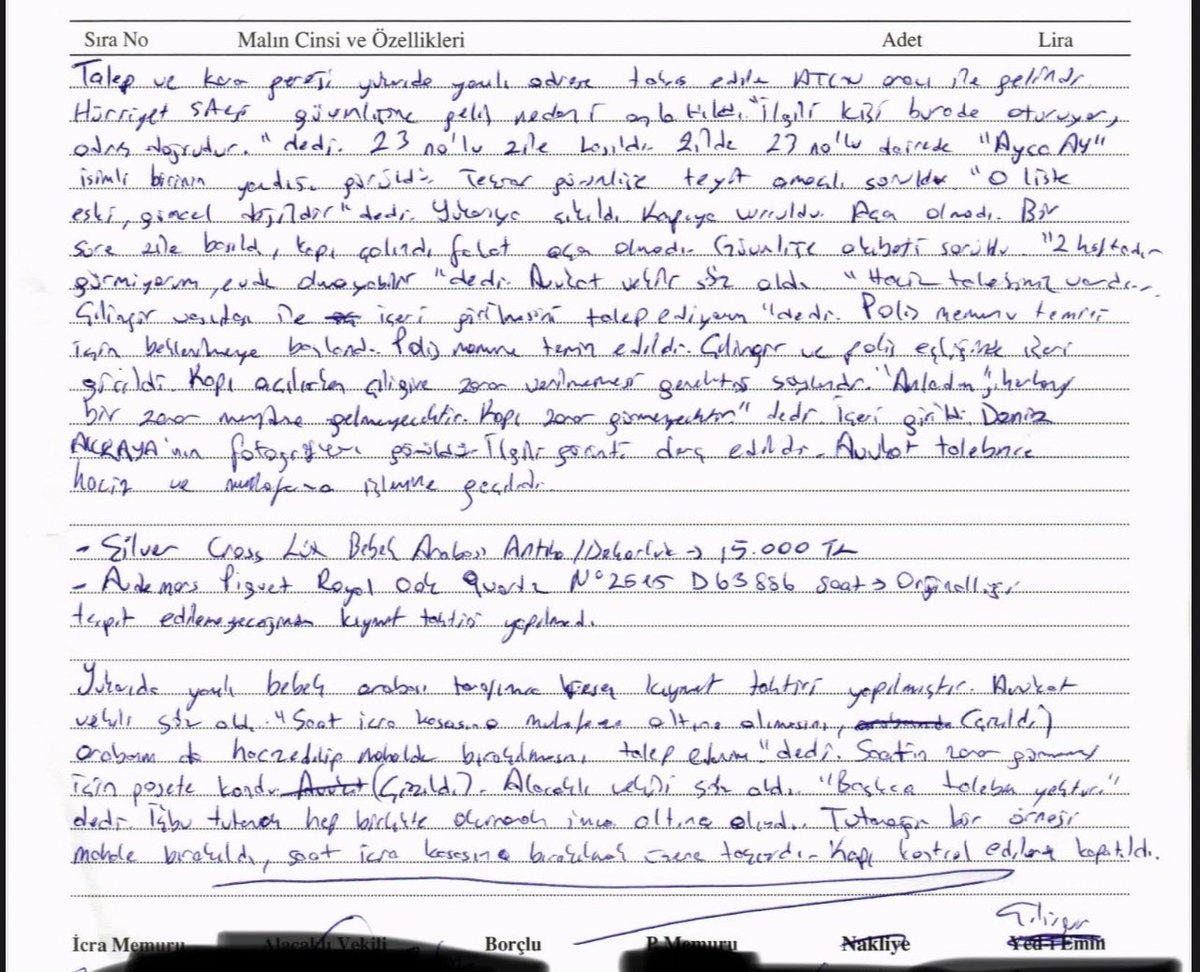 Sıra No Malın Cinsi ve Özellikleri Adet Lira
Talep ve karar gereği yukarıda yazılı adrese edilen aracı ile gelindi.
Hürriyet güvenliğine geliş nedeni "İlgili kişi burada oturuyor,
adres doğrudur." dedi. 23 no'lu zile basıldı. Zilde 23 no'lu dairede "Ayça Ay"
isimli birinin yazdığı görüldü. Tekrar güvenliğe teyit amaçlı soruldu. "O liste
eski, güncel değildir" dedi. Yukarıya çıkıldı. Kapıya vuruldu. Açan olmadı. Bir
süre zile basıldı, kapı çalındı fakat açan olmadı. Güvenliğe akıbeti soruldu. "2 haftadır
görmüyorum, evde olmayabilir" dedi. Avukat vekili söz aldı. "Haciz talebimiz vardır.
Çilingir vasıtası ile içeri girilmesini talep ediyorum" dedi. Polis memuru temini
için beklenmeye başlandı. Polis memuru temin edildi. Çilingir ve polis eşliğinde içeri
girildi. Kapı açılırken zarar verilmemesi gerektiği söylendi. "Anladım, herhangi
bir zarar meydana gelmeyecektir. Kapı zarar görmeyecektir" dedi. İçeri girildi. Deniz
AKKAYA'nın fotoğrafları görüldü. İlgili görüntü derç edildi. Avukat talebince
haciz ve muhafaza işlemine geçildi.
- Silver Cross Lüx Bebek Arabası Antika/Dekorluk → 15.000 TL
- Audemars Piguet Royal Oak Quartz N° 2515 D63886 saat → Orijinalliği
tespit edilemeyeceğinden kıymet taktiri yapılmadı.
Yukarıda yazılı bebek arabası tarafımca resen kıymet taktiri yapılmıştır. Avukat
vekili söz aldı. "Saat icra kasasına muhafaza altına alınmasını, (çizildi)
arabanın da haczedilip mahalde bırakılmasını talep ederim" dedi. Saatin zarar görmemesi
için poşete kondu. Avukat (Çizildi.). Alacaklı vekili söz aldı. "Başkaca talebim yoktur."
dedi. İşbu tutanak hep birlikte okunarak imza altına alındı. Tutanağın bir örneği
mahalde bırakıldı, saat icra kasasına bırakılmak üzere Kapı kontrol edilerek kapatıldı.
Çilingir
İcra Memuru Alacaklı Vekili Borçlu P.Memuru Nakliye Yed-i Emin